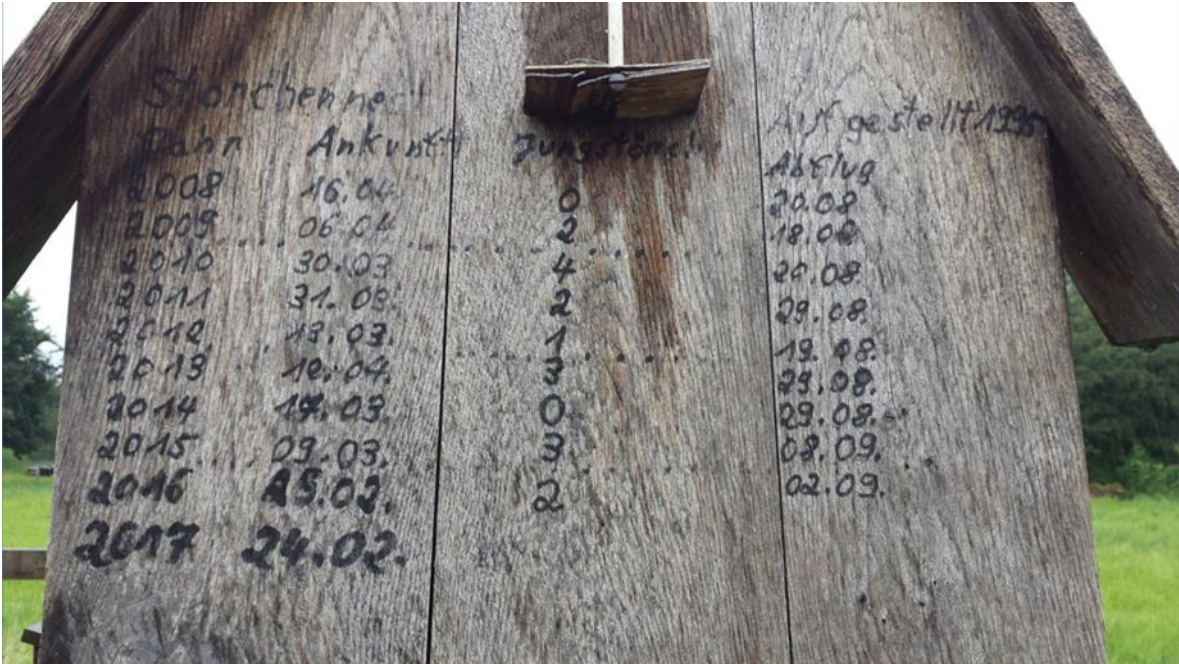 Storchennest
Aufgestellt 1995
Ankunft Jungstörche Abflug
2008 16.04. 0 20.08
2009 06.04 2 18.08
2010 30.03 4 26.08.
2011 31.03. 2 29.08.
2012 13.03. 1 19.08.
2013 10.04. 3 29.08.
2014 17.03. 0 29.08.
2015 09.03. 3 08.09.
2016 25.02. 2 02.09.
2017 24.02.